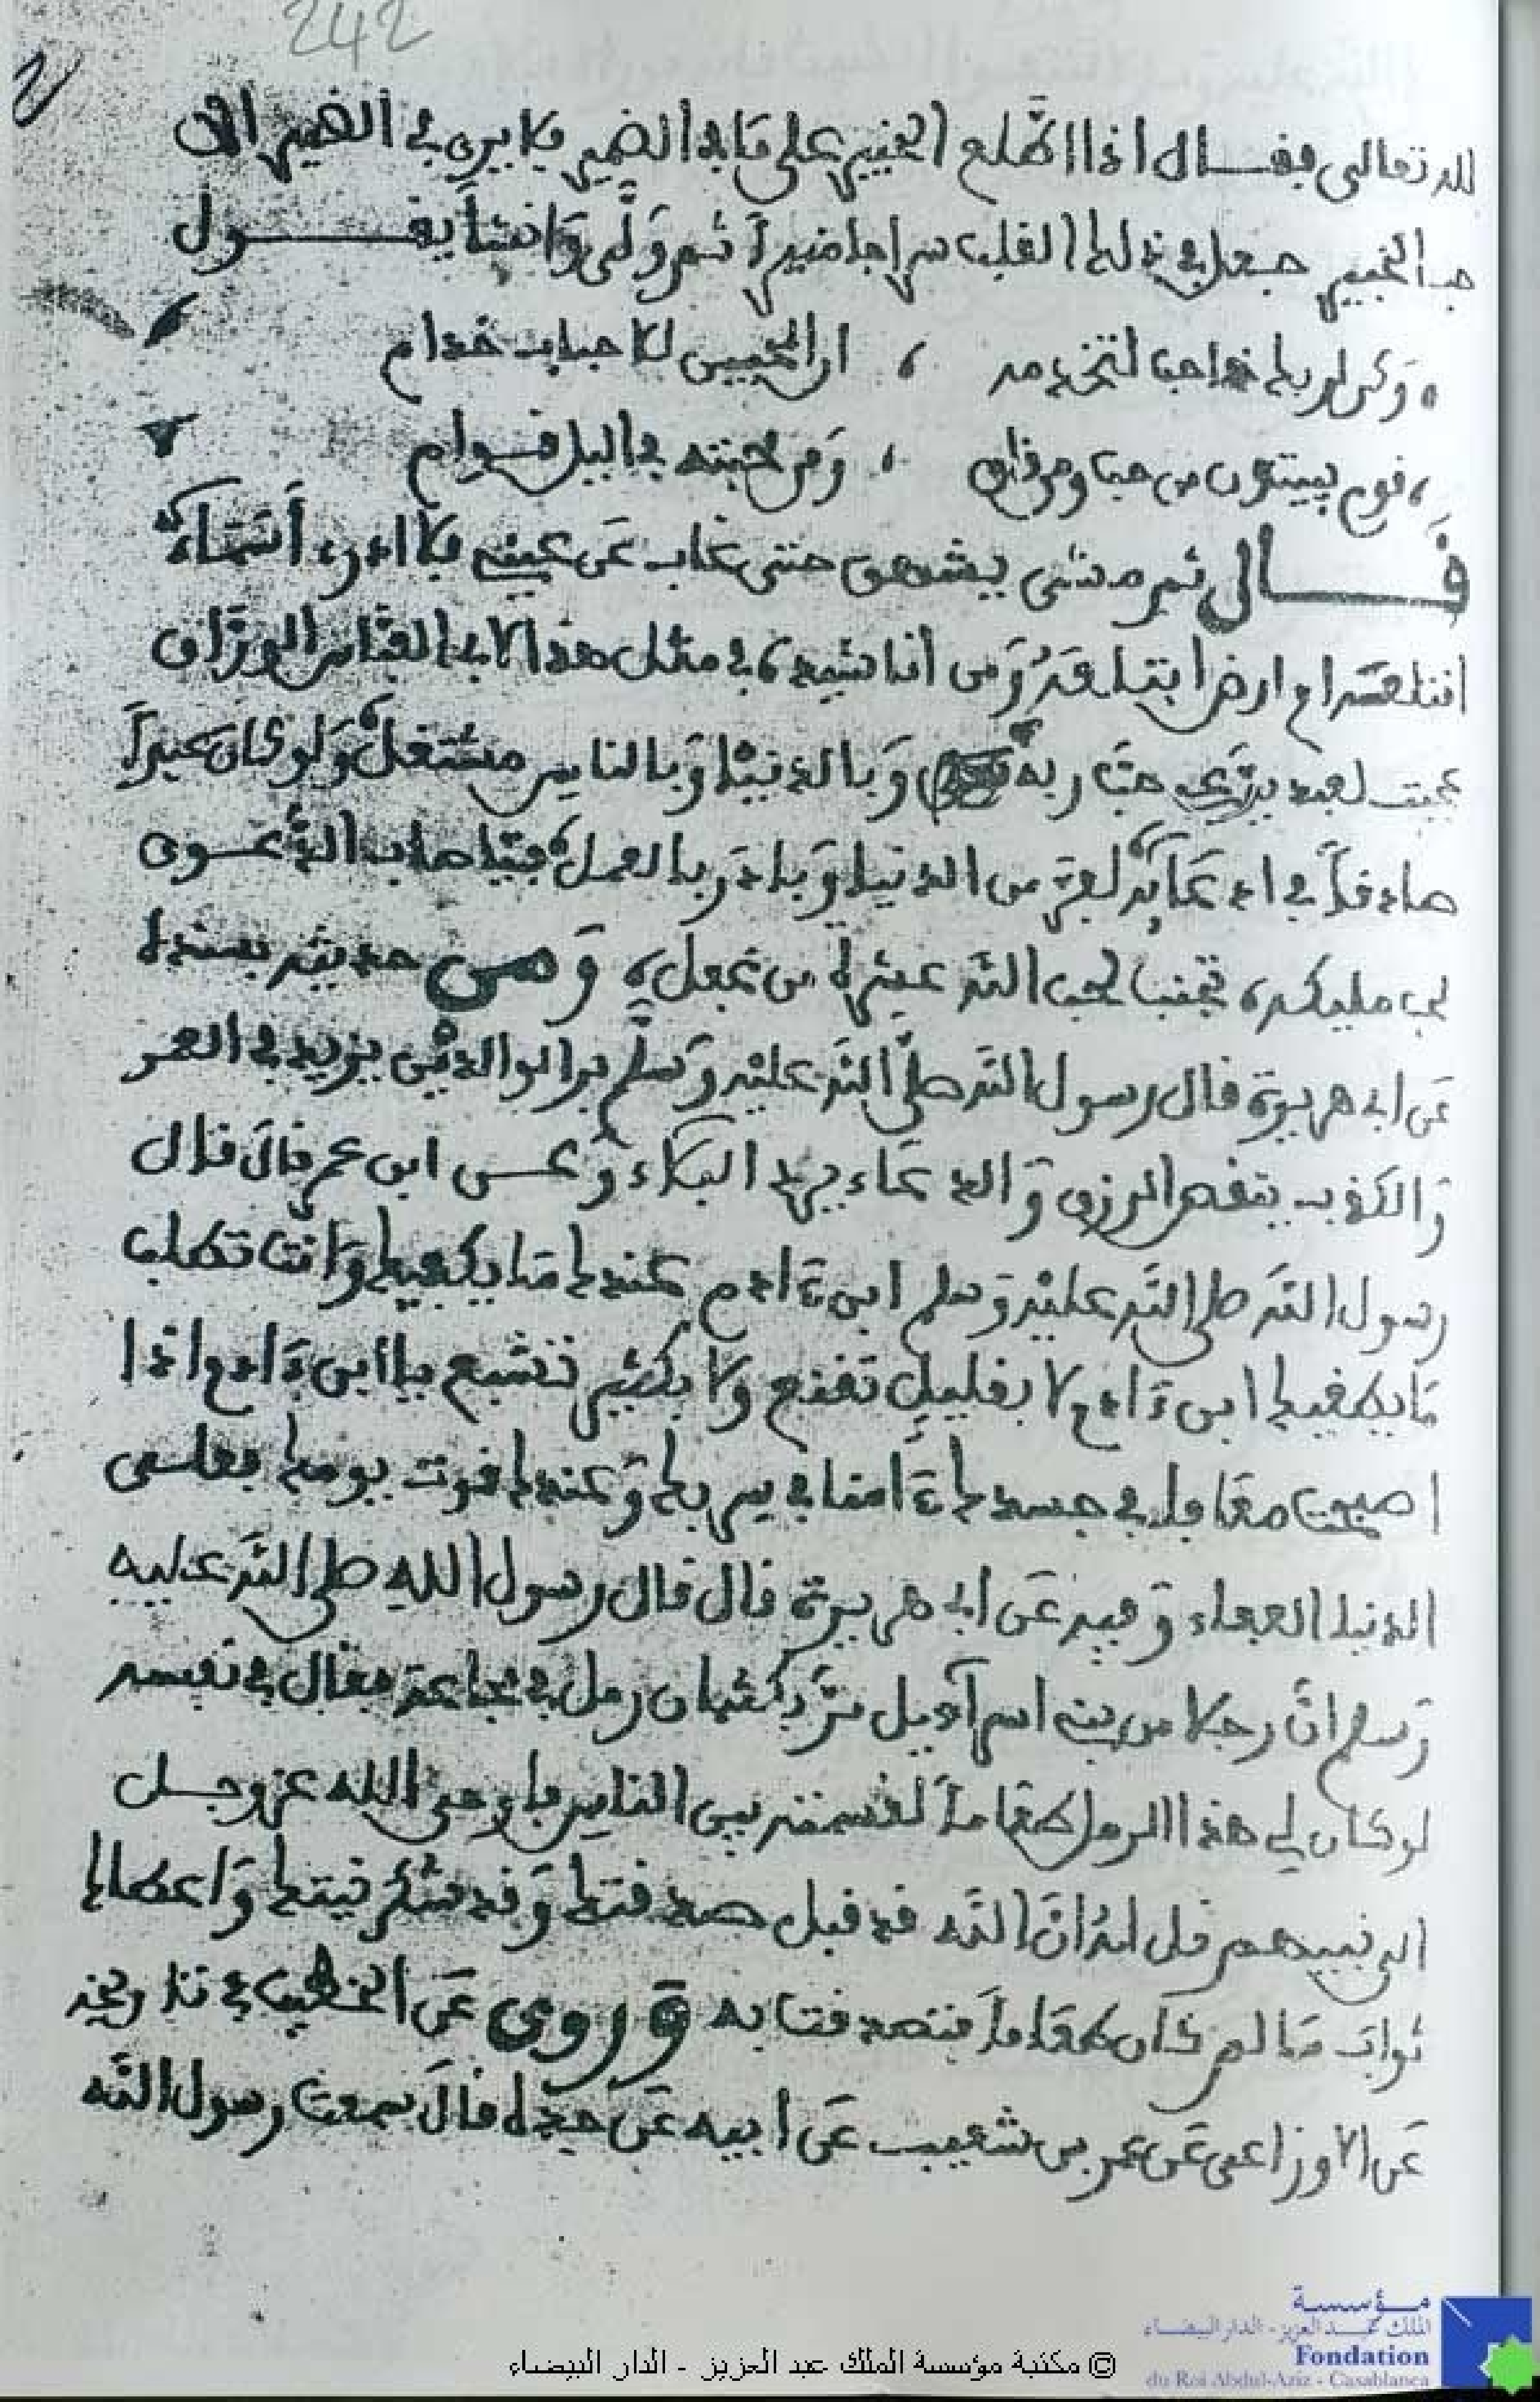 242
الله تعالى فقال اذا اطلع الخبير على ما في الضمير فلا يرى في الضمير الا
حب الخبير جعل في ذلك القلب سراجا منيرا ثم ولى وانشا يقول
وكن لربك ذا حب لتخدمه ، ان المحبين للاحباب خدام
قوم يبيتون من حب ومن ، ومن محبته في اليل قوام
قال ثم مشى حتى غاب عن عيني فلا ادري أسماء
ام ارض ابتلعته ومن أناشيده في مثل هذا لابي الوراق
عجبت لعبد يدعي حب ربه وبالدنيا وبالناس مشتغل ولو كان عبدا
صادقا في ادعائه لفر من الدنيا وبادر بالعمل فيا صاحب الدعوى
لحب مليكه تجنب لحب الله غيره من فعل ومن حديثه بسنده
عن ابي هريرة قال رسول الله صلى الله عليه وسلم بر الوالدين يزيد في العمر
والكذب ينقص الرزق والدعاء يرد البلاء وعن ابن عمر قال قال
رسول الله صلى الله عليه وسلم ابن ءادم عندك ما يكفيك وانت تطلب
ما يطغيك ابن ءادم لا بقليل تقنع ولا بكثير تشبع يا ابن ءادم اذا
اصبحت معافا في جسدك ءامنا في سربك وعندك قوت يومك فعلى
الدنيا العفاء وفيه عن ابي هريرة قال قال رسول الله صلى الله عليه
وسلم ان رجلا من بني اسرآءيل مر بكثبان رمل في مجاعة فقال في نفسه
لو كان لي هذا الرمل طعاما لقسمته بين الناس فاوحى الله عز وجل
الى نبيهم قل له ان الله قد قبل صدقتك وقد شكر نيتك واعطاك
ثواب ما لو كان طعاما فتصدقت به وروى عن الخطيب في تاريخه
عن الاوزاعي عن عمر بن شعيب عن ابيه عن جده قال سمعت رسول الله
© مكتبة مؤسسة الملك عبد العزيز - الدار البيضاء
مؤسسة
الملك عبد العزيز - الدار البيضاء
Fondation
du Roi Abdul-Aziz - Casablanca